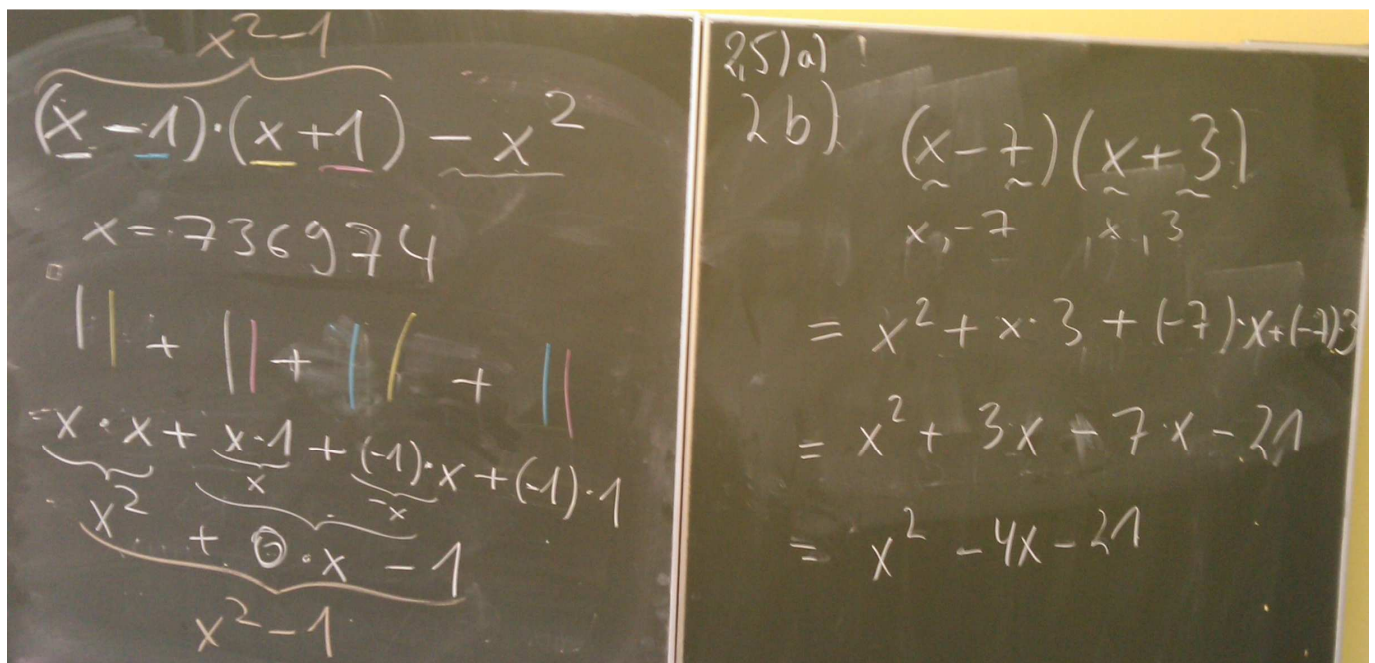 x²-1
(x-1)·(x+1)-x²
x=736974
+ + +
=x·x+x·1+(-1)·x+(-1)·1
x -x
x²+0·x-1
x²-1
2,5)a)!
2b) (x-7)(x+3)
x,-7 ,x,3
=x²+x·3+(-7)·x+(-7)·3
=x²+3x-7x-21
=x²-4x-21